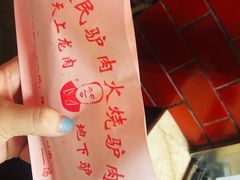 民驴肉火烧驴肉
天上龙肉
地下驴